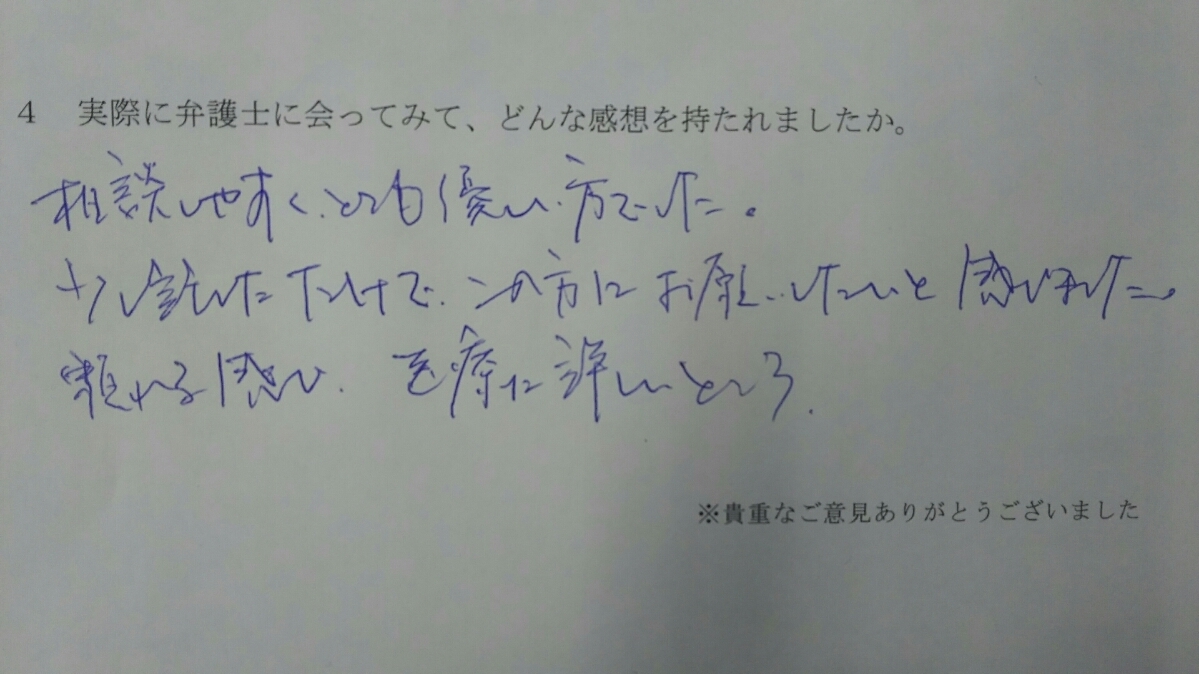 4 実際に弁護士に会ってみて、どんな感想を持たれましたか。
相談しやすく、とても優しい方でした。
少し話しただけで、この方にお願いしたいと感じました。
頼れる感じ、医療に詳しいところ.
※貴重なご意見ありがとうございました